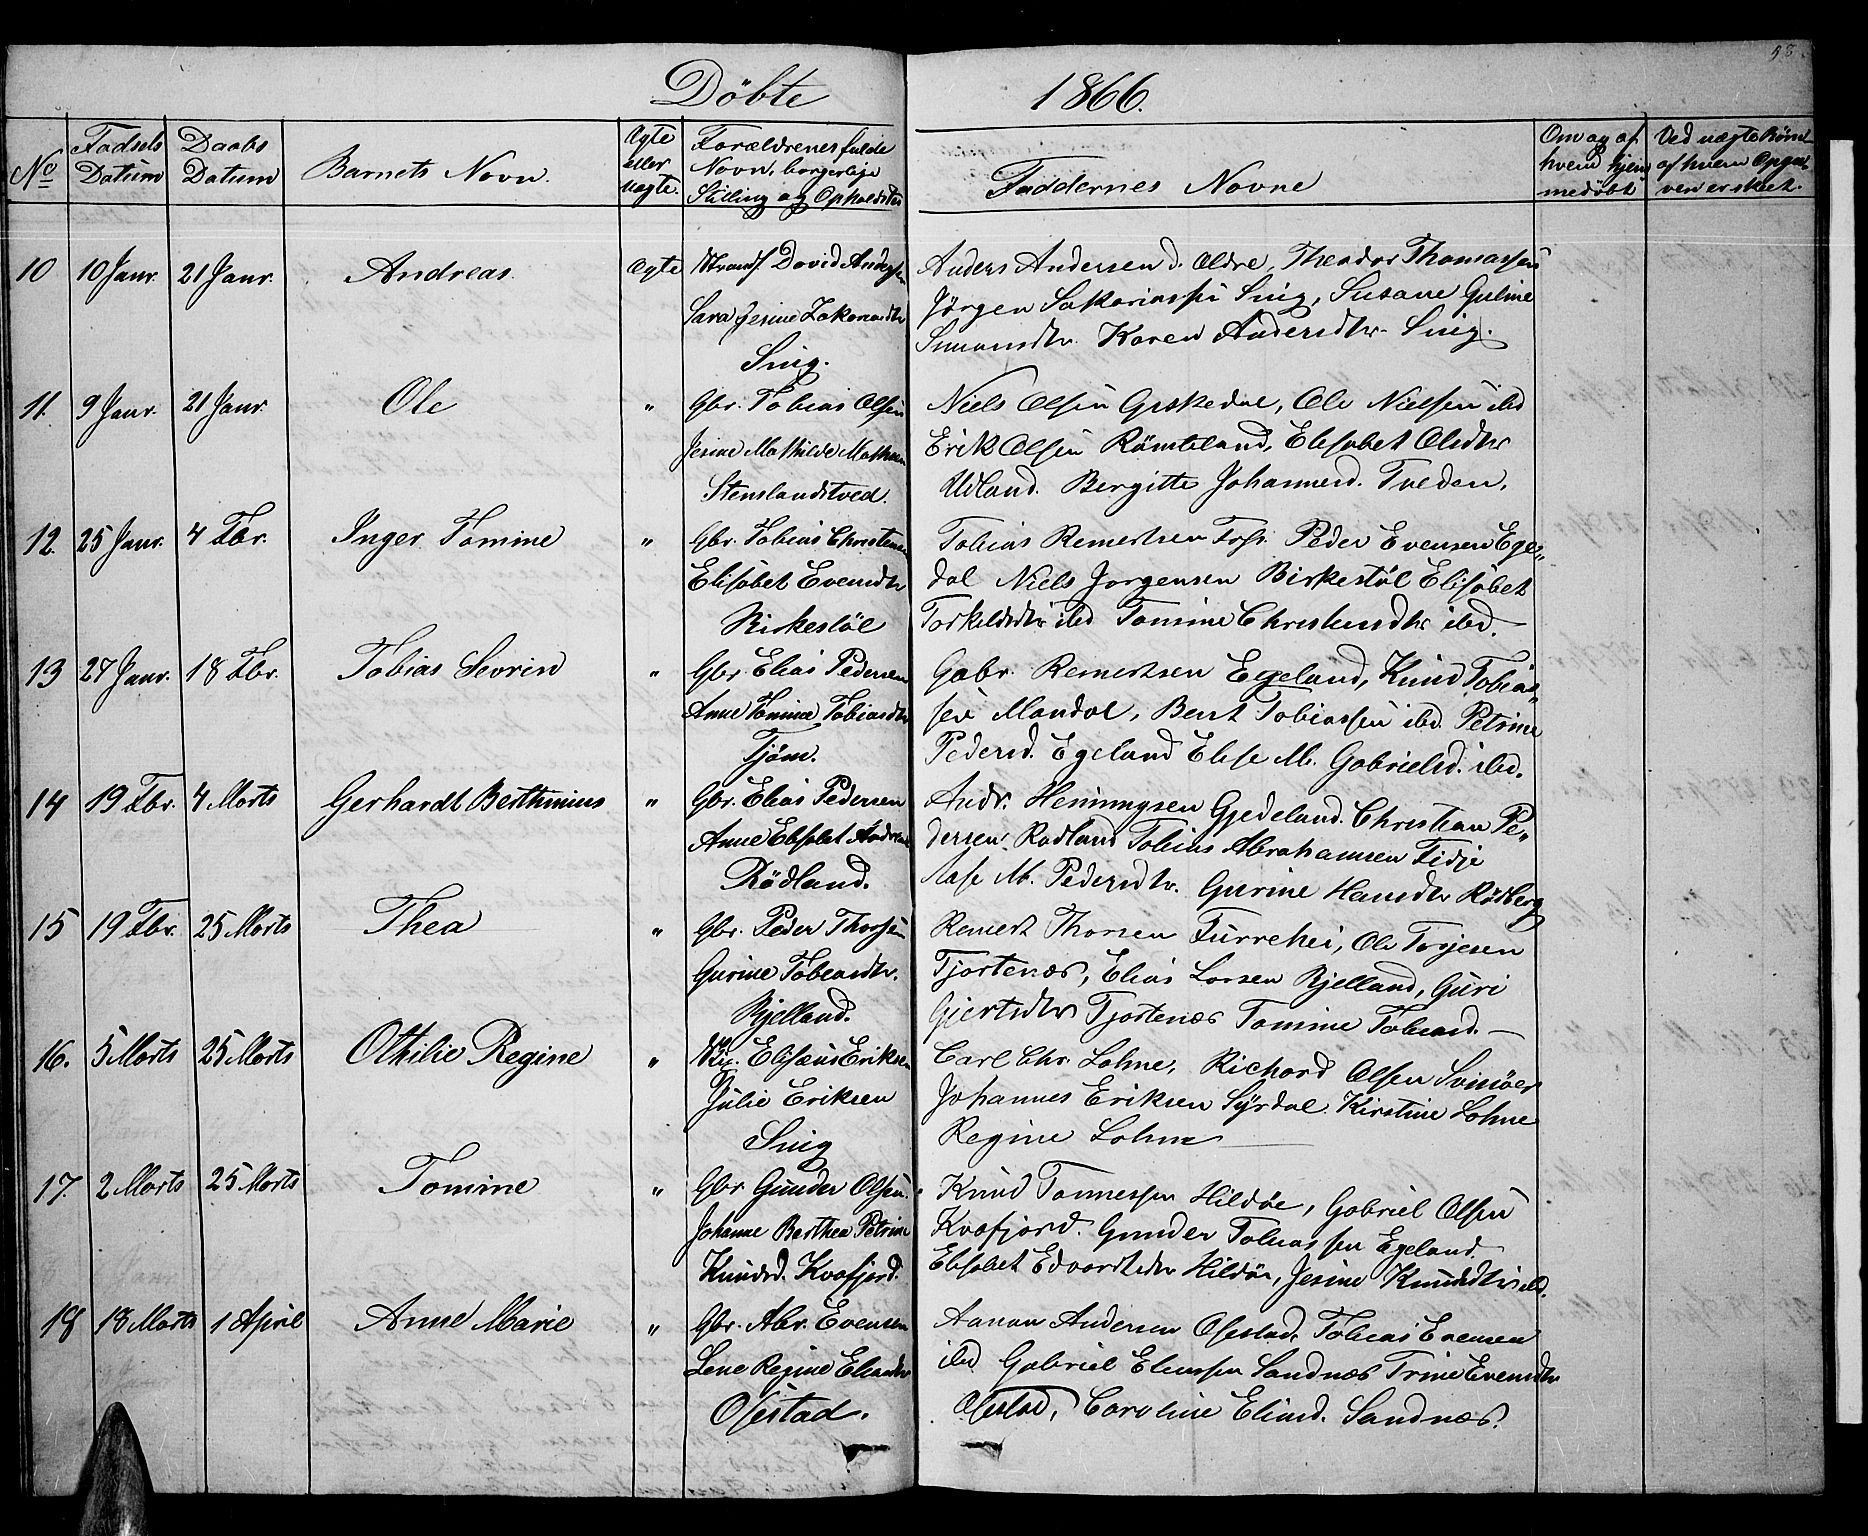 58
Döbte 1866.
No
Fødsels Datum
Daabs Datum
Barnets Navn.
Ægte eller uægte.
Forældrenes fulde Navn, borgerlige Stilling og Opholdsted
Faddernes Navne
Om og af hvem hjemmedøbt
Ved uægte Børn af hvem Opgaven er skeet.
10 10 Janr. 21 Janr. Andreas. Ægte Strands. David Andersen
Sara Jesine Zakariasdtr
Snig.
Anders Andersen d. Ældre, Theodor Thomassen
Jörgen Sakariassen Snig, Susane Guline
Simonsdtr. Karen Andersdtr. Snig.
11. 9 Janr. 21 Janr. Ole " Gbr. Tobias Olsen
Jesine Mathilde
Stenslandstved.
Niels Olsen Geskedal, Ole Nielsen ibd
Erik Olsen Römteland, Elisabet Olsdtr
Udland. Bergitte Johannesd. Tveden.
12. 25 Janr. 4 Fbr. Inger Tomine " Gbr. Tobias Christensen
Elisabet Evensdtr
Birkestöl
Tobias Remertsen Foss. Peder Evensen Eges-
dal Niels Jorgensen Birkestöl Elisabet
Torkeldsdtr ibd Tomine Christensdtr ibd.
13 27 Janr. 18 Fbr. Tobias Sevrin " Gbr. Elias Pedersen
Anne Tomine Tobiasdtr
Tjöm.
Gabr. Remertsen Egeland, Knud Tobias-
sen Mandal, Bent Tobiassen ibd. Petrine
Pedersd. Egeland Elise M. Gabrielsd. ibd.
14 19 Fbr. 4 Marts Gerhardt Berthinius " Gbr. Elias Pedersen
Anne Elisabet
Rödland.
Andr. Henningsen Gjedeland. Christian Pe-
dersen. Rødland Tobias Abrahamsen Fidje
Aase M. Pedersdtr. Gurine Hansdtr Rödberg
15 19 Fbr. 25 Marts Thea " Gbr. Peder Thorsen
Gurine Tobiasdtr.
Bjelland.
Remert Thorsen Furrehei, Ole Torjesen
Tjortenæs, Elias Larsen Bjelland, Guri
Gjertsdtr Tjortenæs Tomine Tobiasd.
16. 5 Marts 25 Marts Othilie Regine " Elisæus Eriksen
Julie Eriksen
Snig
Carl Chr. Lohne, Richard Olsen Svinöer
Johannes Eriksen Syrdal. Kirstine Lohne
Regine Lohne
17. 2 Marts 25 Marts Tomine " Gbr Gunder Olsen.
Johanne Berthea Petrine
Knudsd. Kvafjord.
Knud Tønnessen Hildöe, Gabriel Olsen
Kvafjord. Gunder Tobiassen Egeland.
Elisabet Edvardtsdtr Hildöe, Jesine Knudsdtr ibd.
18 18 Marts 1 April Anne Marie " Gbr. Abr. Evensen
Lene Regine Eliasdtr
Ofestad.
Aanan Andersen Ofestad, Tobias Evensen
ibd Gabriel Eliassen Sandnæs Trine Evensdtr
Ofestad, Caroline Eliasd. Sandnæs.